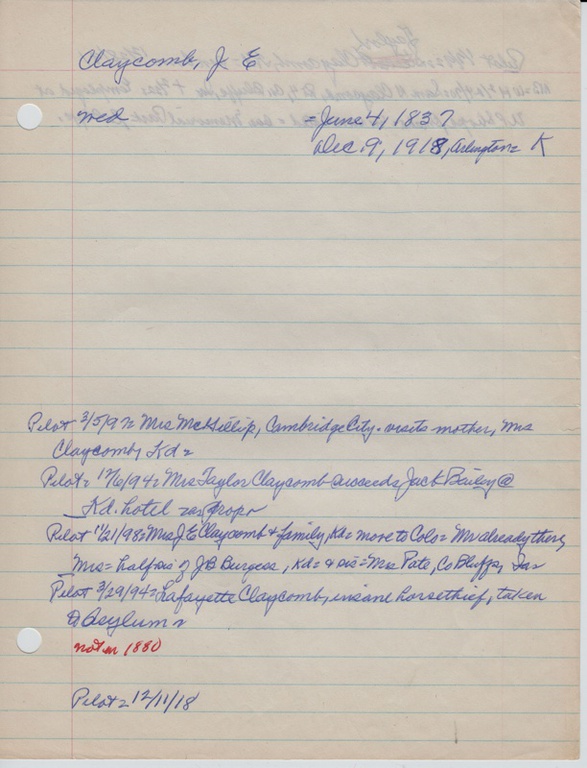 Claycomb, J E
med = June 4, 1837
Dec 9, 1918, Arlington = K
Pilot 3/5/92 Mrs McKillip, Cambridge City. visits mother, Mrs
Claycomb, Kd =
Pilot = 12/6/94 = Mrs Taylor Claycomb succeeds Jack Bailey @
Kd. hotel as propr
Pilot 11/21/98 = Mrs J E Claycomb & family, Kd = move to Colo = Mr already there,
Mrs = half sis of J B Burgess, Kd = & sis = Mrs Pate, Co Bluffs, Ia =
Pilot 3/29/94 = Lafayette Claycomb, insane horsethief, taken
@ Asylum =
not in 1880
Pilot = 12/11/18